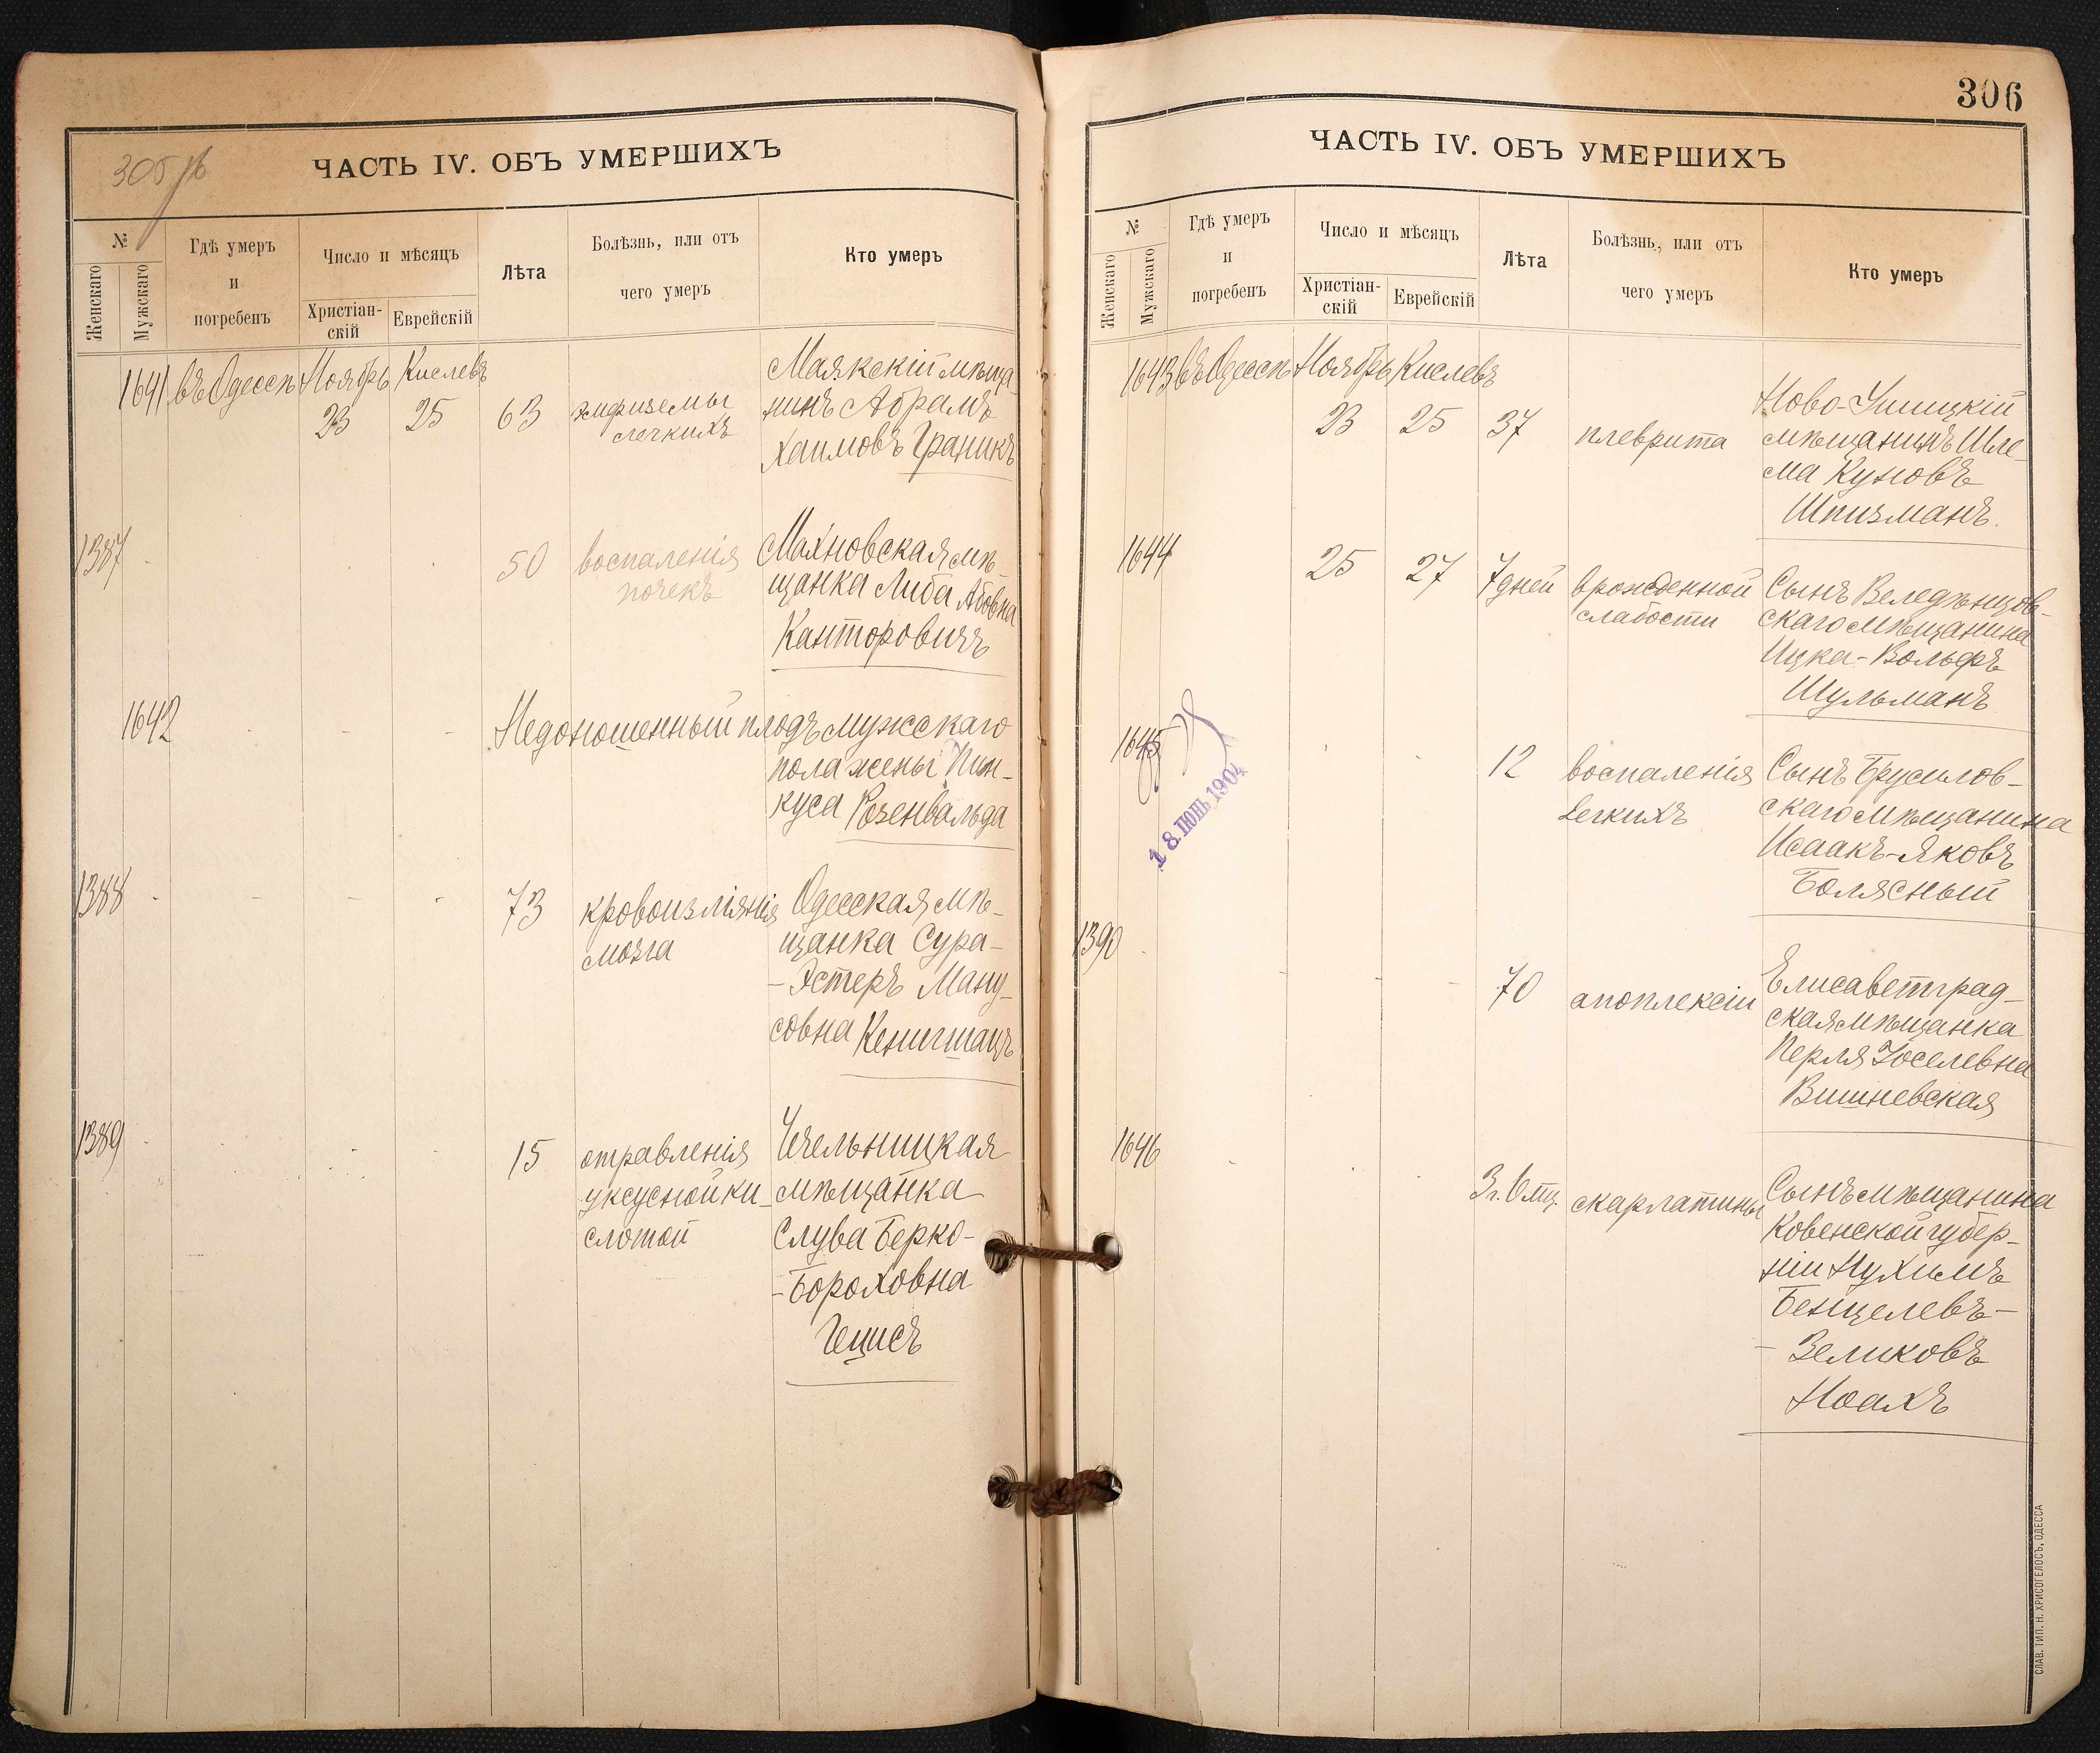 305 об
ЧАСТЬ IV. ОБЪ УМЕРШИХЪ
№
Женскаго
Мужскаго
Гдѣ умеръ
и
погребенъ
Число и мѣсяцъ
Христіан-
скій
Еврейскій
Лѣта
Болѣзнь, или отъ
чего умеръ
Кто умеръ
1641 въ Одессѣ Ноябрь Кислевъ
23 25 63 эмфиземы
легкихъ
Маякскій мѣща
нинъ Абрамъ
Хаимовъ Граникъ
1387 50 воспаленія
почекъ
Махновская мѣ-
щанка Либа Абовна
Канторовичъ
1642 Недоношенный плодъ мужскаго
пола жены Пин-
куса Розенвальда
1388 73 кровоизліянія
мозга
Одесская мѣ-
щанка Сура-
-Эстеръ Ману-
совна Кенигшацъ
1389 15 отравленія
уксусной ки-
слотой
Чечельницкая
мѣщанка
Слува Берко-
-Бороховна
Гецисъ
306
ЧАСТЬ IV. ОБЪ УМЕРШИХЪ
№
Женскаго
Мужскаго
Гдѣ умеръ
и
погребенъ
Число и мѣсяцъ
Христіан-
скій
Еврейскій
Лѣта
Болѣзнь, или отъ
чего умеръ
Кто умеръ
1643 въ Одессѣ Ноябрь Кислевъ
23 25 37 плеврита
Ново-Ушицкій
мѣщанинъ Шле-
ма Куновъ
Шпизманъ.
1644 25 27 7 дней врожденной
слабости
Сынъ Веледницов-
скаго мѣщанина
Ицка-Вольфъ
Шульманъ
1645 12 воспаленія
легкихъ
Сынъ Брусилов-
скаго мѣщанина
Исаакъ-Яковъ
Болясный
18. ІЮНЬ 1904
1390 70 апоплексіи
Елисаветград-
ская мѣщанка
Перля Іоселевна
Вишневская
1646 3 г. 0 мц. скарлатины
Сынъ мѣщанина
Ковенской губер-
ніи Нухимъ
Бенцелевъ-
-Зеликовъ
Ноахъ
СЛАВ. ТИП. Н. ХРИСОГЕЛОСЪ, ОДЕССА